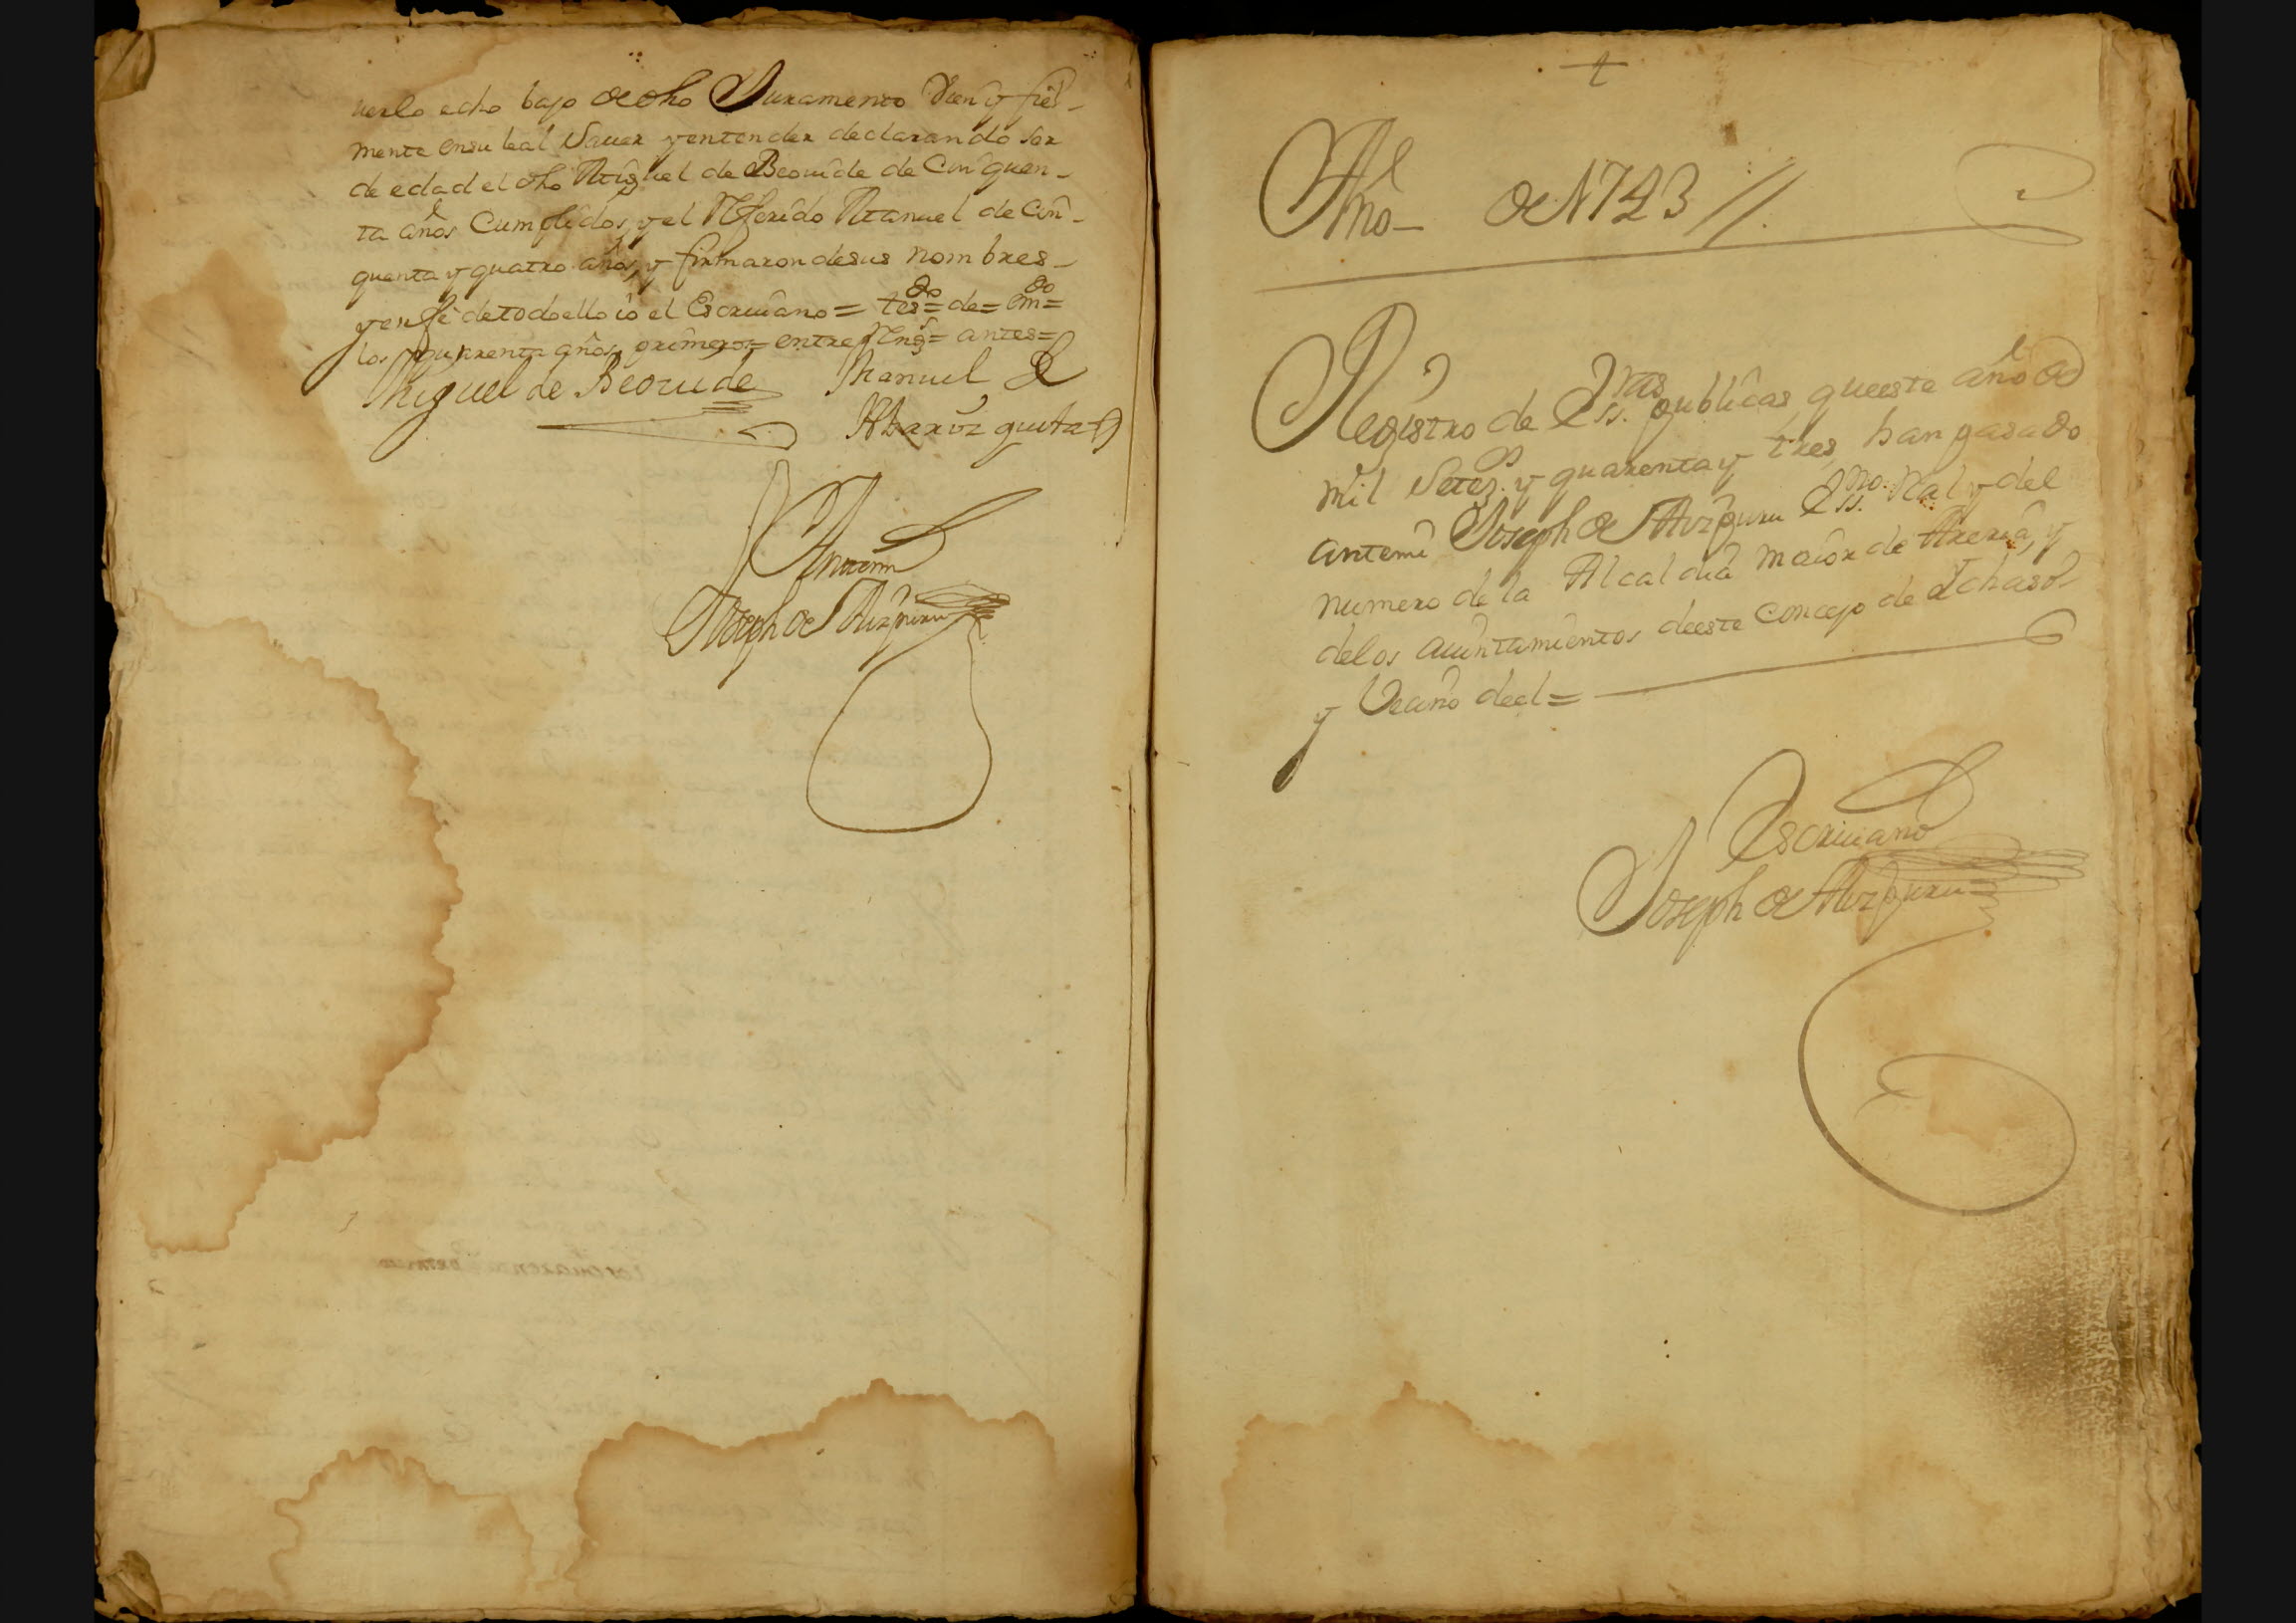 uerlo echo bajo de dho Juramento Vien y fiel-
mente en su leal Sauer y entender declarando ser
de edad el dho Miguel de Beouide de Cinquen-
ta años Cumplidos, y el Referido Manuel de Cin-
quenta y quatro años, y firmaron de sus nombres-
y en fe de todo ello io el Escriuano = tesdo= de= emdo=
los quarenta años primeros= entre Rengs= antes=
Miguel de Beouide Manuel de
Ybaruz guitar
Antemi
Joseph de Aizpuru
+
Año de 1743 //.
Registro de Essras publicas, que este año de
mil Setezs y quarenta y tres, han pasado
ante mi Joseph de Aizpuru Essno Ral y del
numero de la Alcaldia maior de Areria, y
de los aiuntamientos de este Concejo de Ichaso
y Vecino de el =
Escriuano
Joseph de Aizpuru